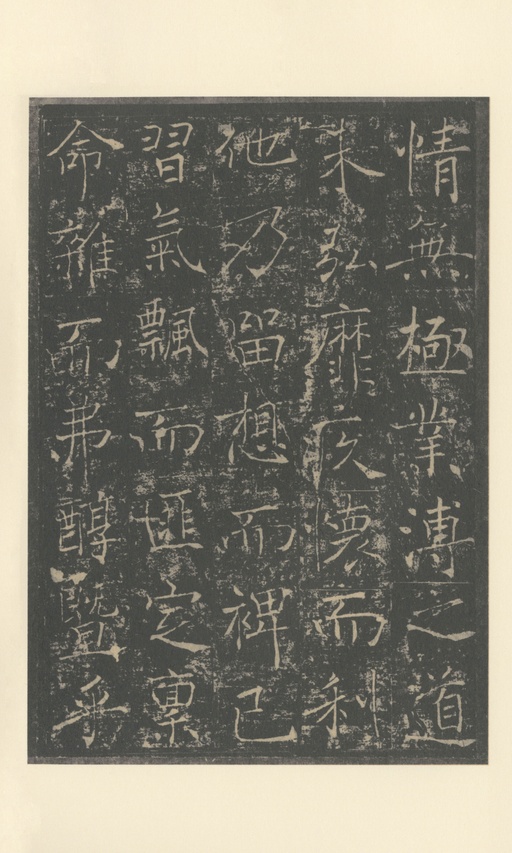 情無極業溥之道
未弘靡疚懷而利
他乃留想而裨己
習氣飄而匪定稟
命雜而弗醇曁乎